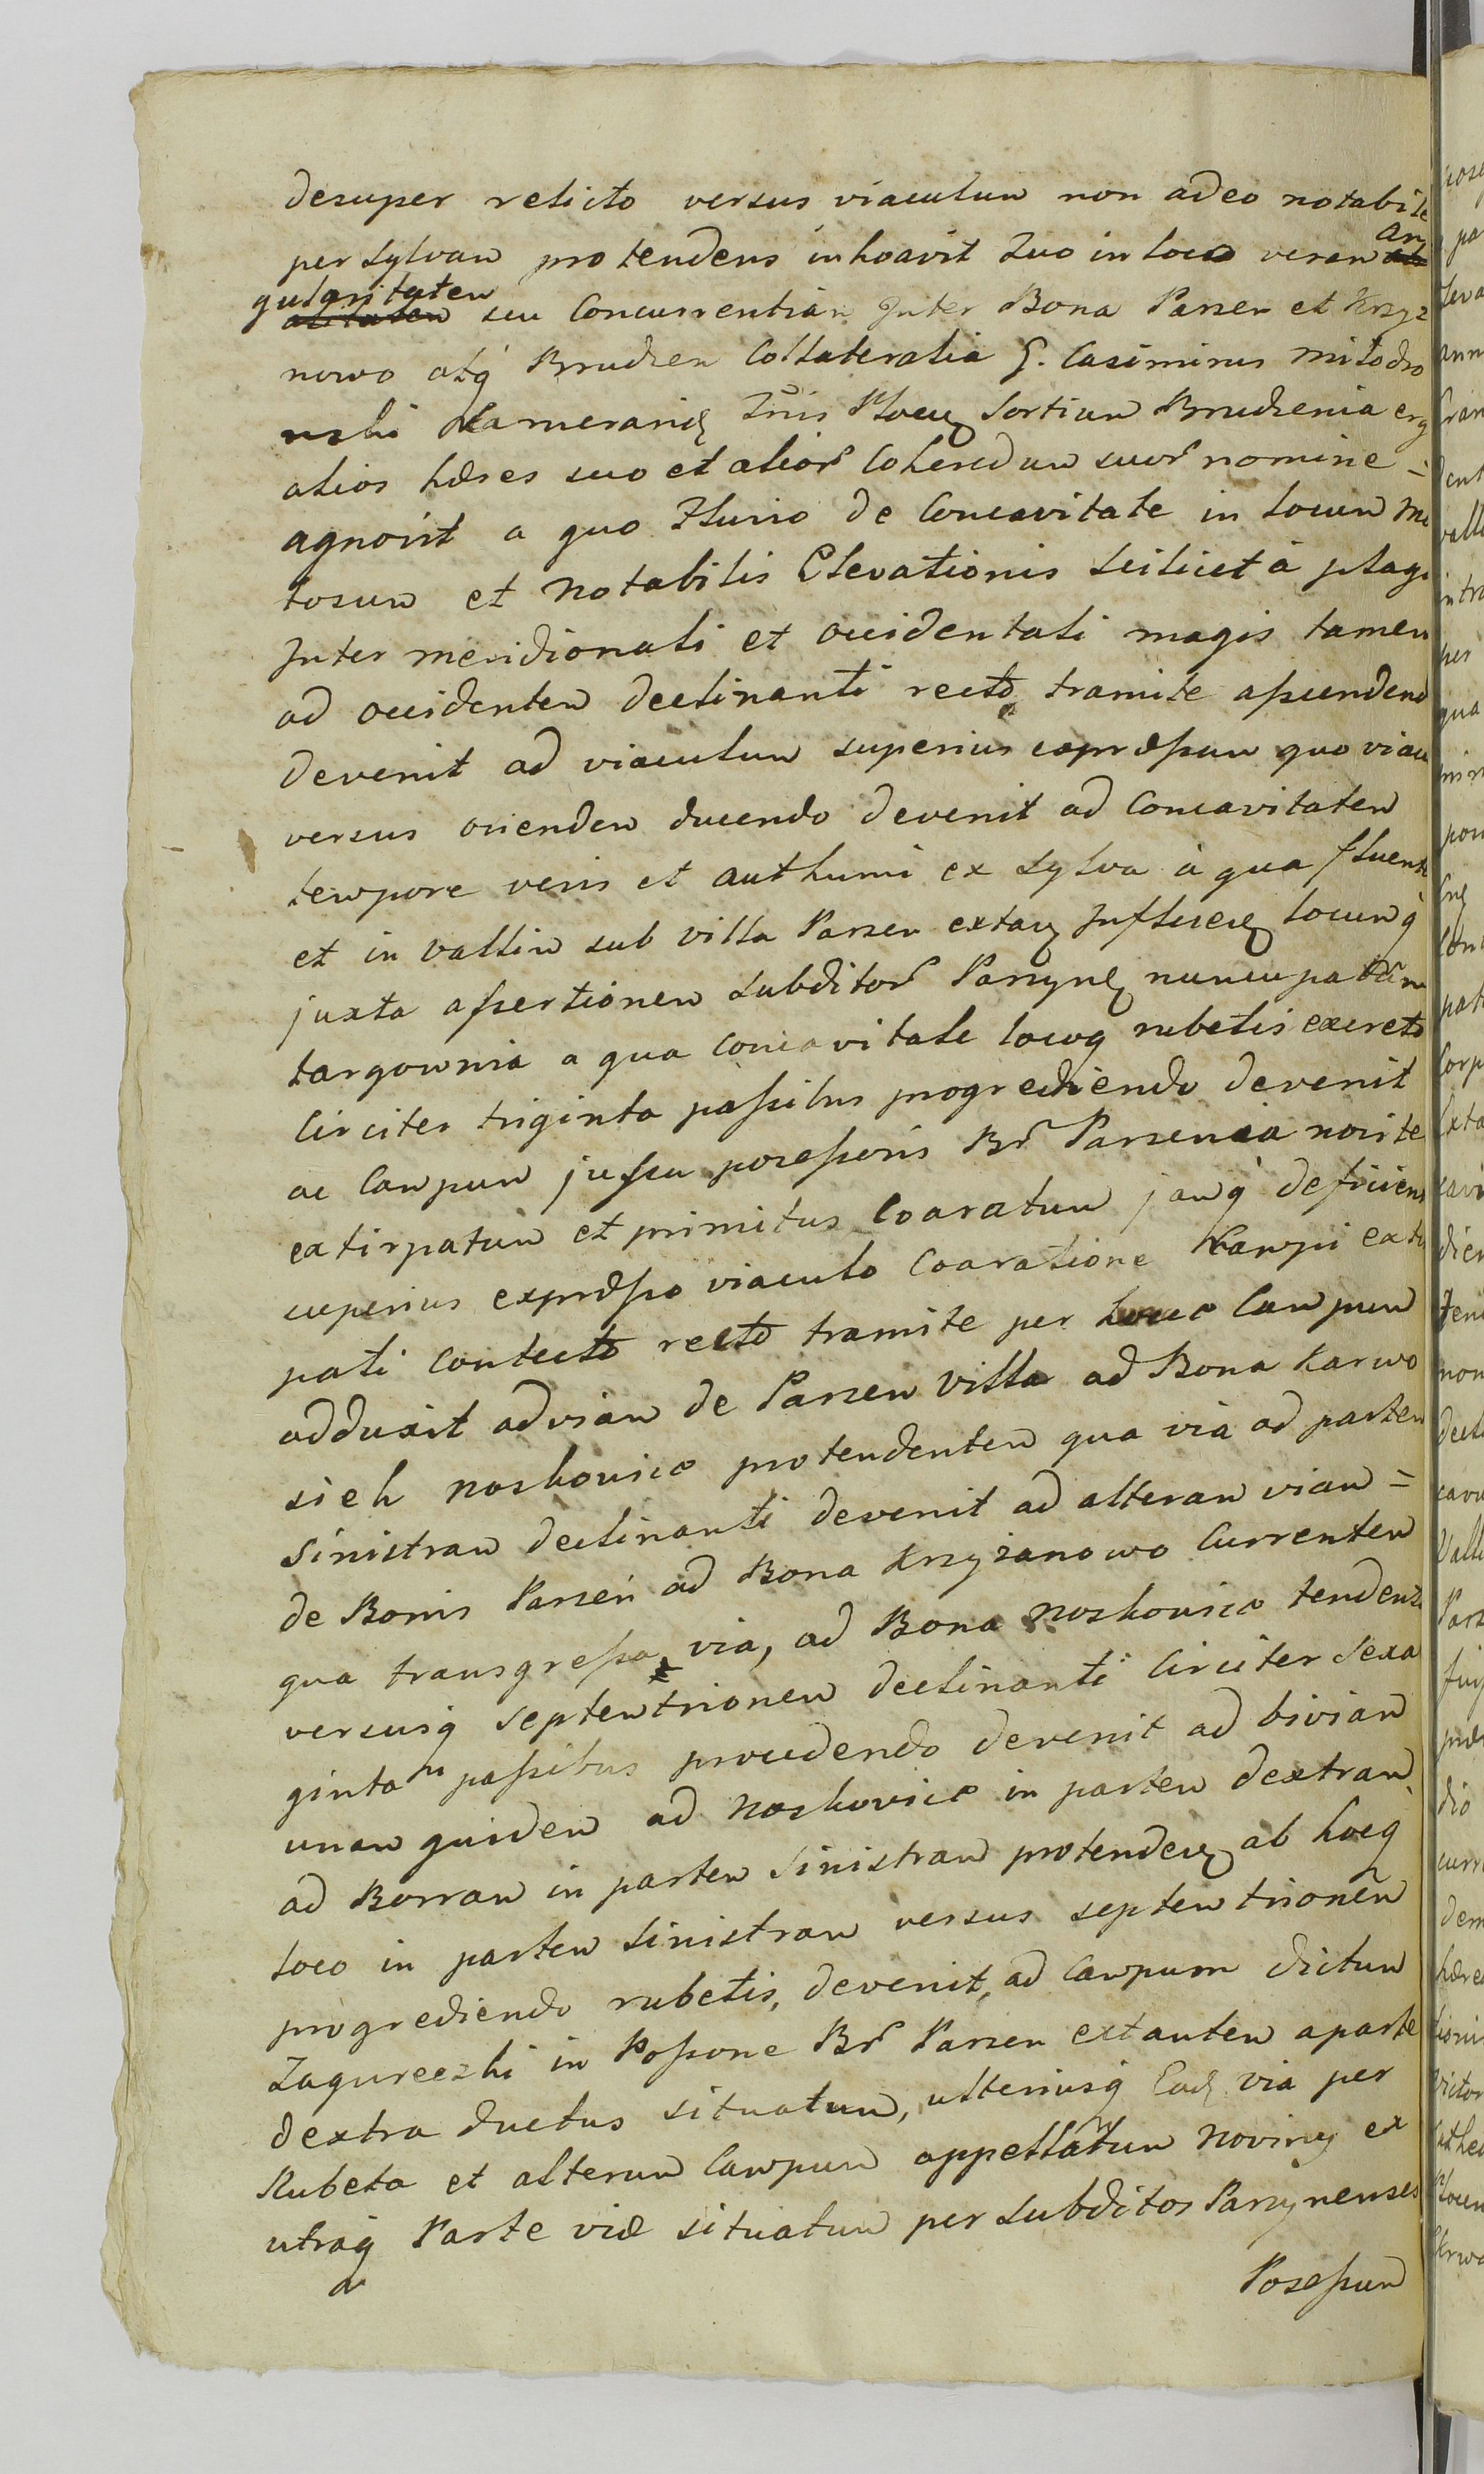 desuper relicto versus viaculum non adeo notabile
per sylvam protendens inhoavit Quo in loco veram an
gularitatem seu Concurrentiam Inter Bona Parzen et Krzyż
nowo atq Brudzen Collateralia G. Casimirus Miłodro
wski Kamerariq Tris Plocen Sortium Brudzenia erg
alios hæres suo et alior Coheredum suor nomine =
agnovit a quo Fluvio de Concavitate in locum Mo
tosum et Notabilis Elevationis scilicet á plaga
Inter meridionali et occidentali magis tamen
ad occidentem declinanti recto tramite assuendend
devenit ad viaculum superius expræssum quo viacu
versus orienden ducendo devenit ad Concavitatem
tempore veris et authumi ex sylva á qua fluent
et in vallim sub villa Parzen extan Influen locumq
juxta assertionem subditor Parzyn nuncupatam
targownia a qua Concavitate locoq rubetis excreto
Circiter triginta passibus progrediendo devenit
ac Campum jussu posessoris Br Parzenia noviter
extirpatum et primitus Coaratum jamq deficien
superius expræsso viaculo Coaratione Kampi exti
pati Contecto recto tramite per Campum
adduxit ad viam de Parzen Villa ad Bona Karwo
sieh Noskowice protendentem qua via ad partem
Sinistram declinanti devenit ad alteram viam =
de Bonis Parzeń ad Bona Krzyżanowo Currentem
qua transgressa via, ad Bona Noskowice tendenti
versusq septentrionem declinanti Circiter Sexa
ginta passibus procedendo devenit ad biviam
unam quidem ad Noskowice in partem dextram
ad Borram in partem Sinistram protenden ab hocq
loco in partem Sinistram versus septemtrionem
progrediendo rubetis, devenit, ad Campum dictum
Zagureczki in Possone Br Parzen extantem aparte
dextra ductus situatum, ulteriusq Ead via per
Rubeta et alterum Campum appellatum Noviny ex
utraq Parte viæ situatum per Subditos Parzynenses
Posessum